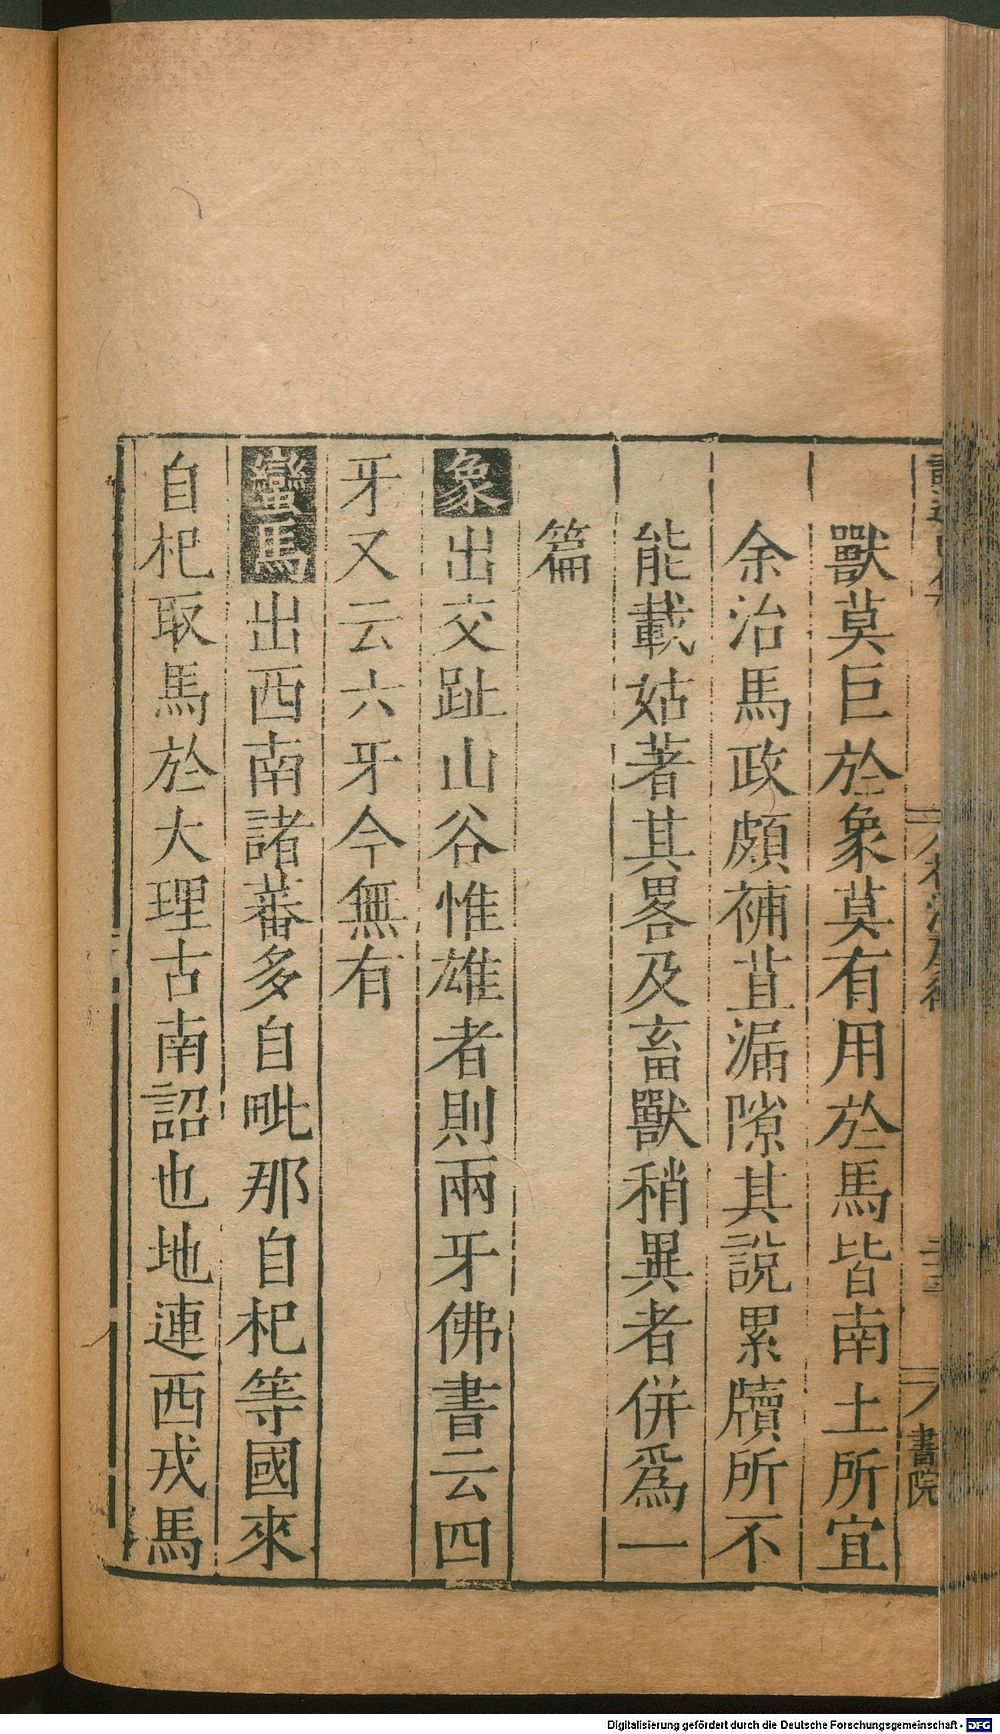 獸莫巨於象莫有用於馬皆南土所宜
余治馬政頗補苴漏隙其說累牘所不
能載姑著其畧及畜獸稍異者併爲一
篇
象出交趾山谷惟雄者則兩牙佛書云四
牙又云六牙今無有
蠻馬出西南諸蕃多自毗那自杞等國來
自杞取馬於大理古南詔也地連西戎馬
書院
Digitalisierung gefördert durch die Deutsche Forschungsgemeinschaft - DFG